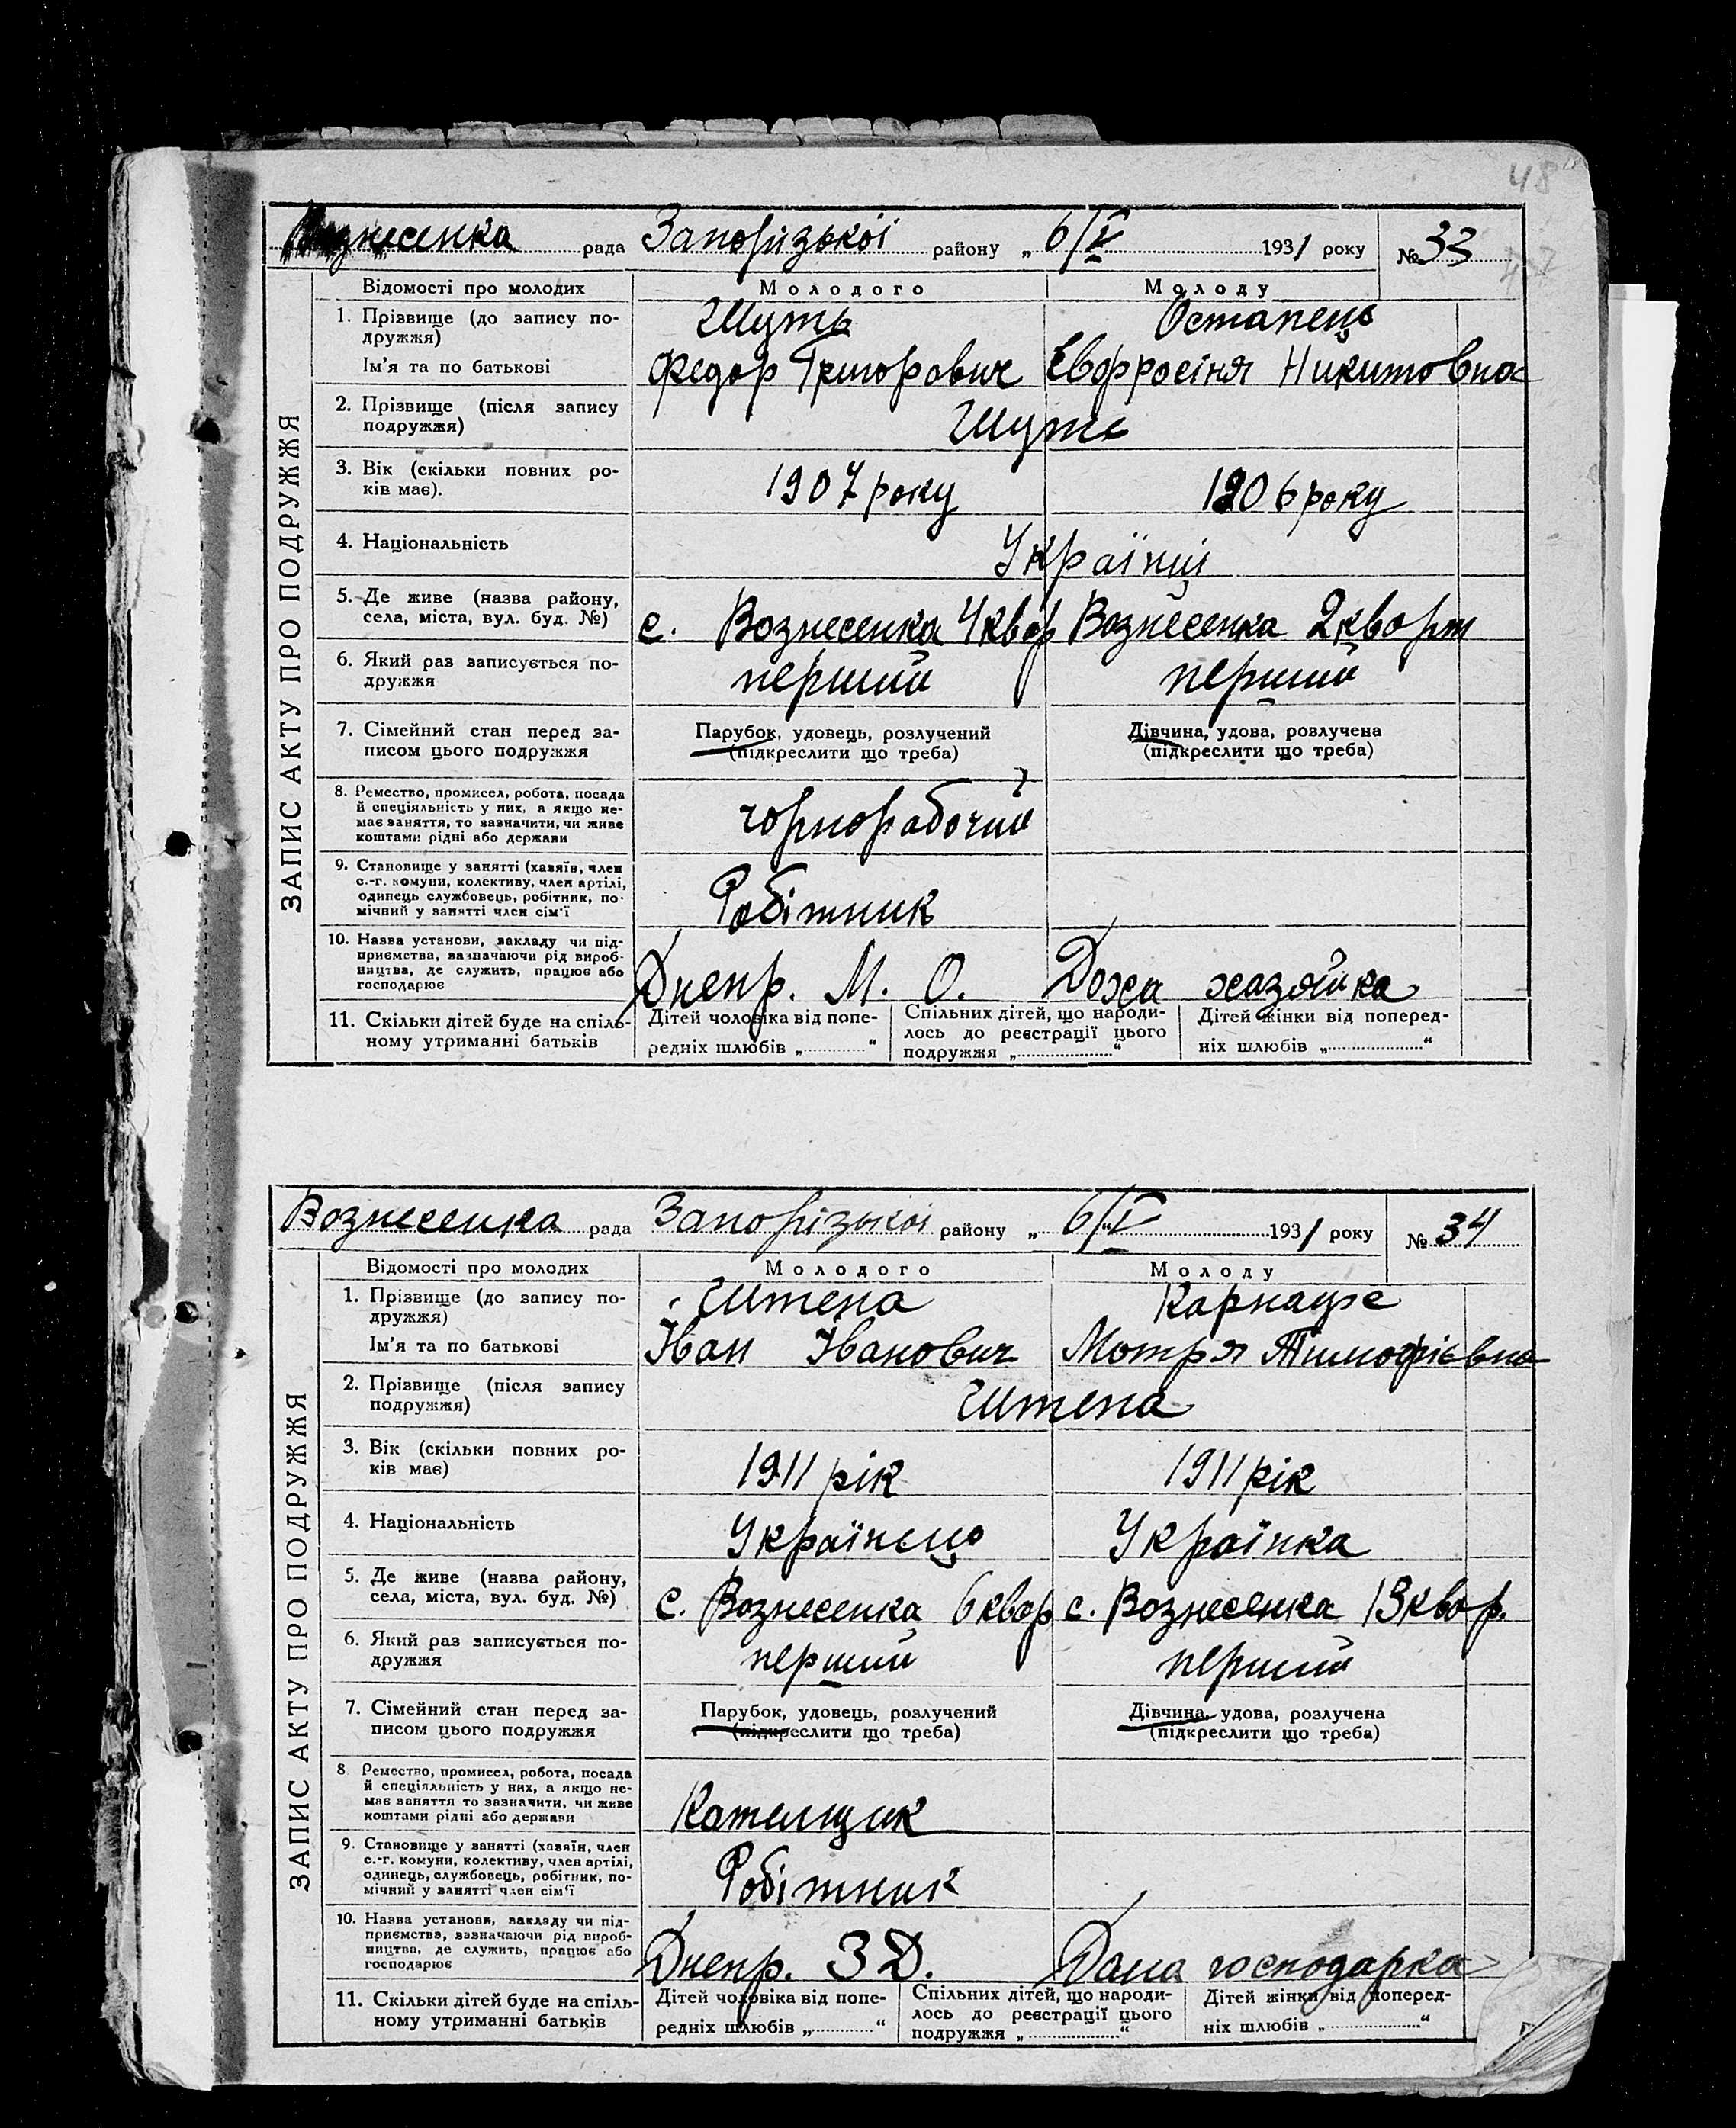 48
Вознесенка рада Запорізької району „ 6/V 1931 року № 33
ЗАПИС АКТУ ПРО ПОДРУЖЖЯ
Відомості про молодих Молодого Молоду
1. Прізвище (до запису по- Шуть Остапець
дружжя)
Ім'я та по батькові Федор Григорович Евфросіня Никитовна
2. Прізвище (після запису
подружжя) Шуть
3. Вік (скільки повних ро-
ків має). 1907 року 1906 року
4. Національність Українці
5. Де живе (назва району,
села, міста, вул. буд. №) с. Вознесенка 4 квар Вознесенка 2 кварт
6. Який раз записується по-
дружжя перший перший
7. Сімейний стан перед за- Парубок, удовець, розлучений Дівчина, удова, розлучена
писом цього подружжя (підкреслити що треба) (підкреслити що треба)
8. Ремество, промисел, робота, посада
й спеціяльність у них, а якщо не-
має заняття, то зазначити, чи живе чорнорабочий
коштами рідні або держави
9. Становище у занятті (хазяїн, член
с.-г. комуни, колективу, член артілі,
одинець службовець, робітник, по- Робітник
мічний у занятті член сім'ї
10. Назва установи, закладу чи під-
приємства, зазначаючи рід вироб-
ництва, де служить, працює або Днепр. М. О. хазяйка
господарює
11. Скільки дітей буде на спіль- Дітей чоловіка від попе- Спільних дітей, що народи- Дітей жінки від поперед-
ному утриманні батьків редніх шлюбів „ “ лось до реєстрації цього ніх шлюбів „ “
подружжя „ “
Вознесенка рада Запорізької району „ 6/V 1931 року № 34
ЗАПИС АКТУ ПРО ПОДРУЖЖЯ
Відомості про молодих Молодого Молоду
1. Прізвище (до запису по- Штепа Карнаух
дружжя)
Ім'я та по батькові Іван Іванович Мотря Тимофієвна
2. Прізвище (після запису
подружжя) Штепа
3. Вік (скільки повних ро-
ків має) 1911 рік 1911 рік
4. Національність Українець Українка
5. Де живе (назва району,
села, міста, вул. буд. №) с. Вознесенка 6 квар с. Вознесенка 13 квар.
6. Який раз записується по-
дружжя перший перший
7. Сімейний стан перед за- Парубок, удовець, розлучений Дівчина, удова, розлучена
писом цього подружжя (підкреслити що треба) (підкреслити що треба)
8 Ремество, промисел, робота, посада
й спеціяльність у них, а якщо не-
має заняття то зазначити, чи живе
коштами рідні або держави Котельщик
9. Становище у занятті (хазяїн, член
с.-г. комуни, колективу, член артілі,
одинець, службовець, робітник, по- Робітник
мічний у занятті член сім'ї
10. Назва установи, закладу чи під-
приємства, зазначаючи рід вироб-
ництва, де служить, працює або Днепр. З Д. господарка
господарює
11. Скільки дітей буде на спіль- Дітей чоловіка від попе- Спільних дітей, що народи- Дітей жінки від поперед-
ному утриманні батьків редніх шлюбів „ “ лось до реєстрації цього ніх шлюбів „ “
подружжя „ “